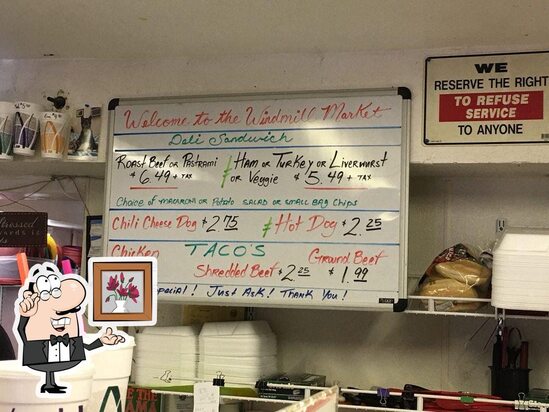 Welcome to the Windmill Market
Deli Sandwich
Roast Beef or Pastrami
$6.49 + TAX
Ham or Turkey or Liverwurst
or Veggie $5.49 + TAX
Choice of macaroni or Potato salad or small bag chips
Chili Cheese Dog $2.75 Hot Dog $2.25
Chicken TACO'S Ground Beef
Shredded Beef $2.25 $1.99
special! Just Ask! Thank You!
WE
RESERVE THE RIGHT
TO REFUSE
SERVICE
TO ANYONE